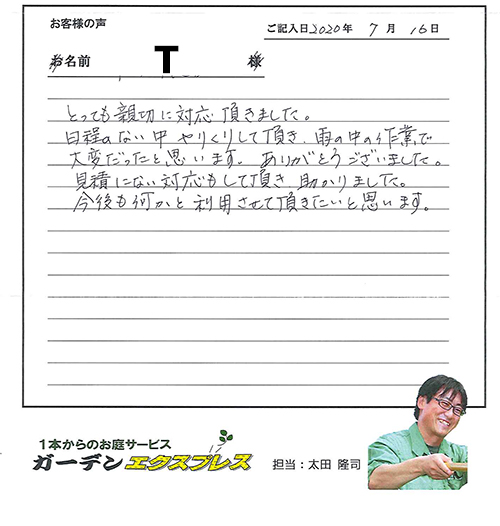 お客様の声
ご記入日2020年 7月 16日
お名前 T 様
とっても親切に対応頂きました。
日程のない中やりくりして頂き、雨の中の作業で
大変だったと思います。ありがとうございました。
見積にない対応もして頂き助かりました。
今後も何かと利用させて頂きたいと思います。
1本からのお庭サービス
ガーデンエクスプレス
担当：太田 隆司